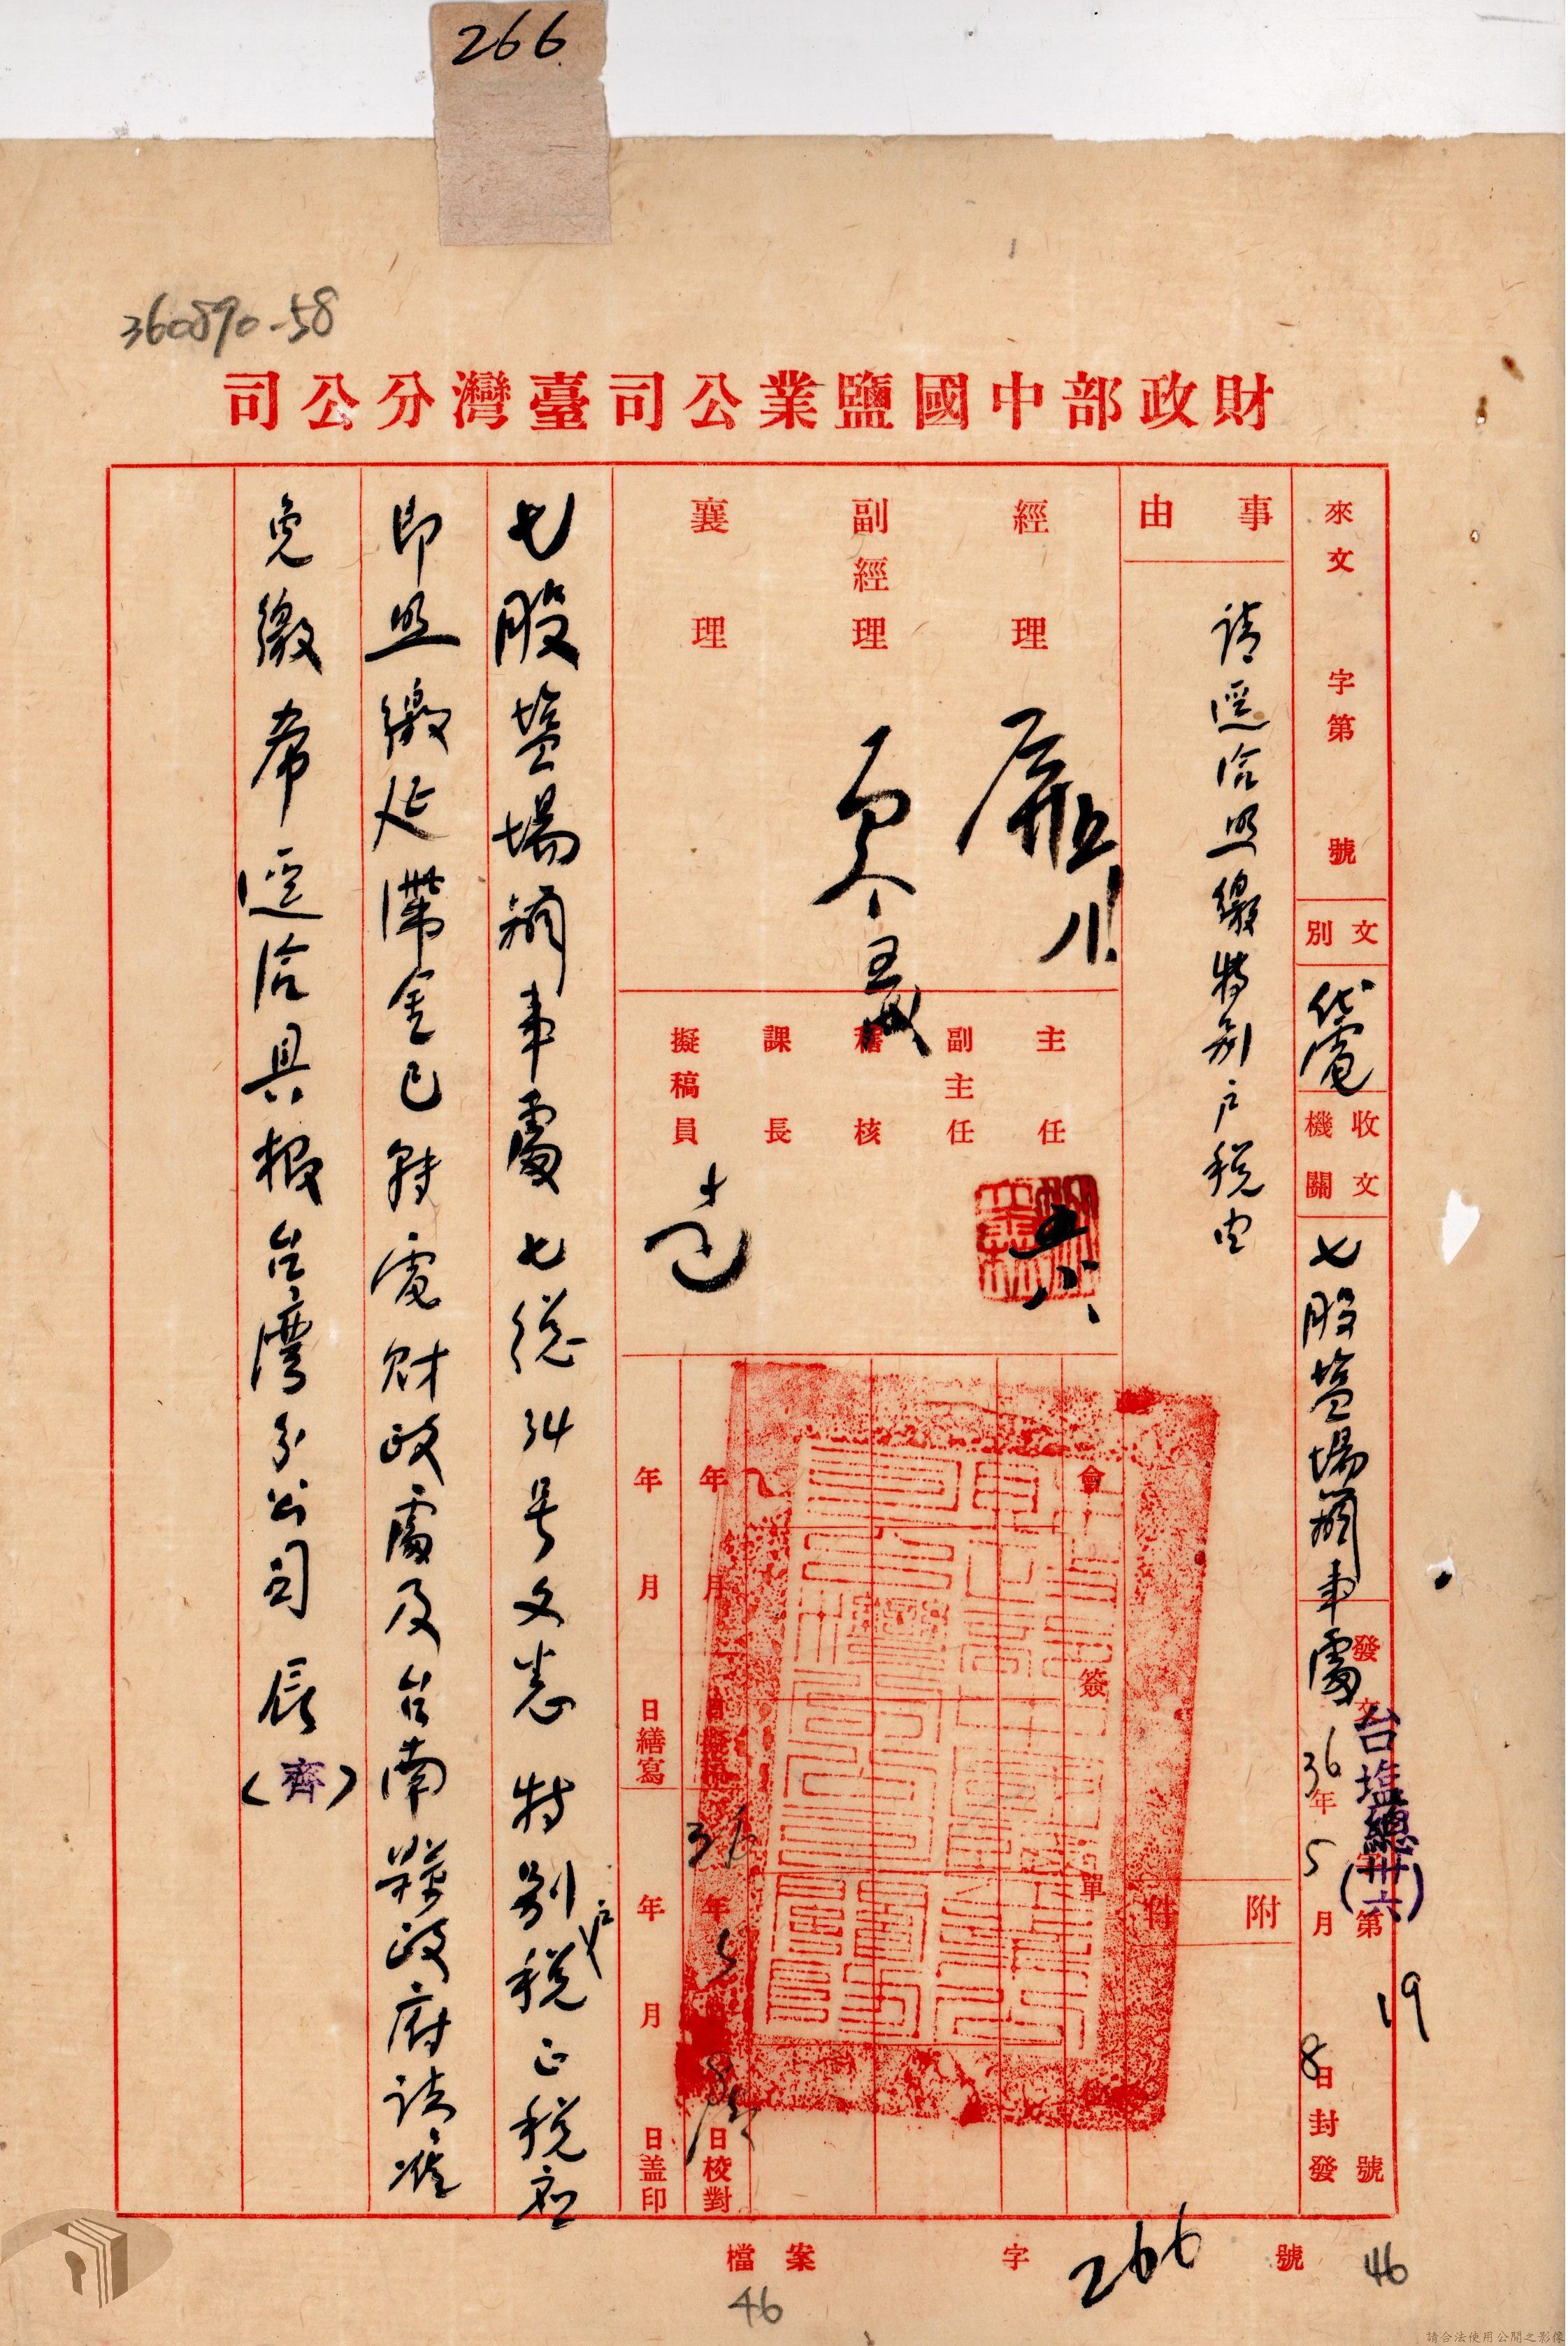 266
360890-58
財政部中國鹽業公司臺灣分公司
來文 字第 號
文別
代電
收文機關
七股塩場辦事處
發文
台塩總(卅六)第 19 號
36年5月8日封發
事由
請逕洽照繳特別户稅由
附件
經理
副經理
襄理
主任
五八
副主任
稽核
課長
擬稿員
會簽單
36年5月8日擬稿
年 月 日校對
年 月 日繕寫
年 月 日蓋印
七股塩場辦事處七總34号文悉特别户稅正稅应
即照繳延滯金已轉電財政處及台南縣政府請准
免繳希逕洽具報台灣分公司辰(齊)
檔案 字 266 號
46
46
請合法使用公開之影像